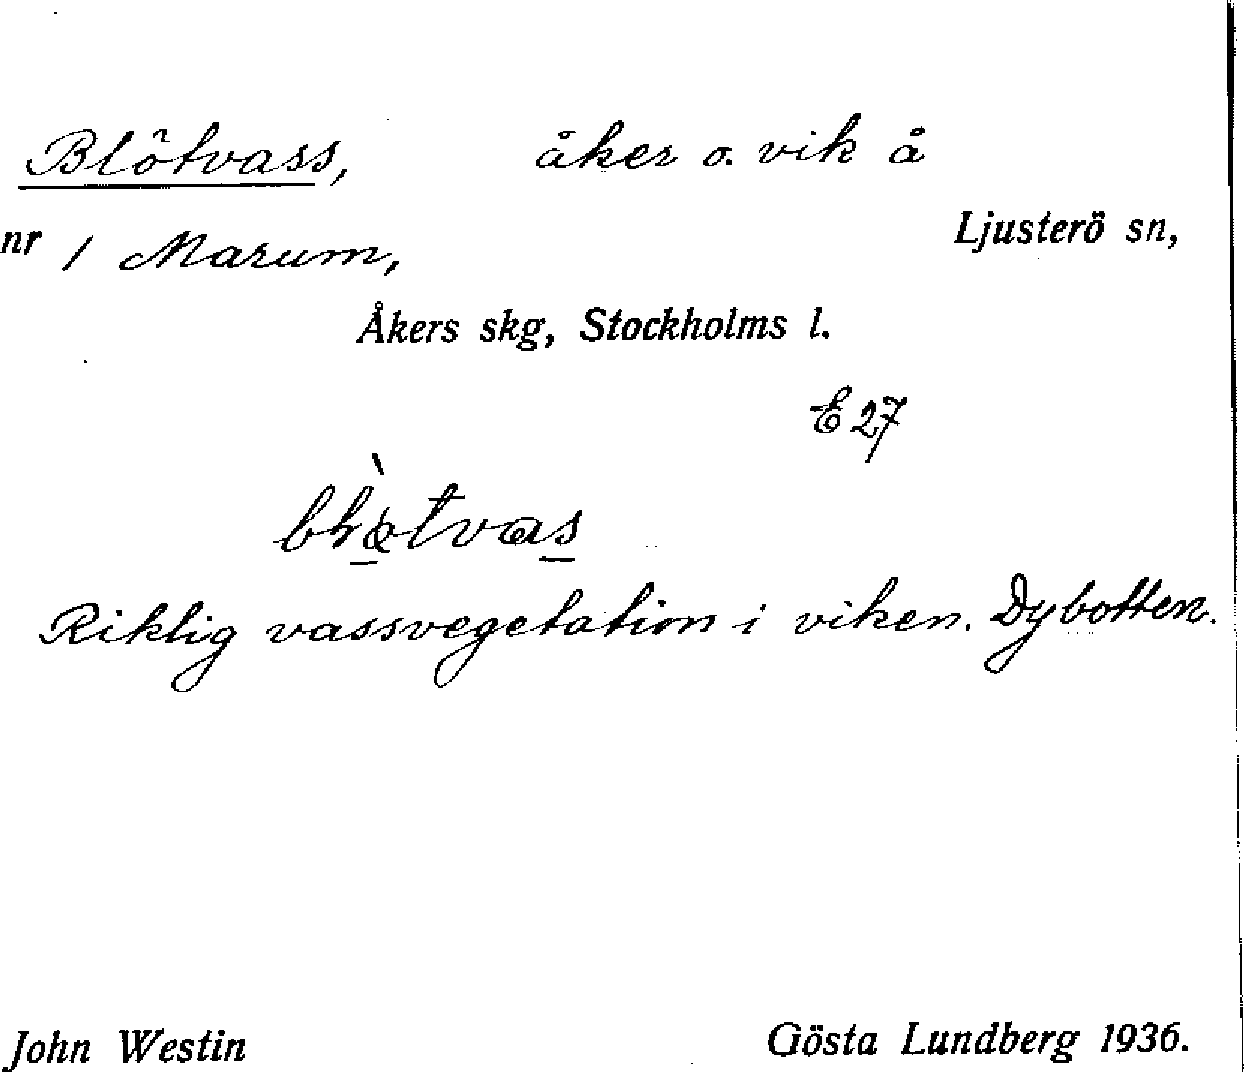 Blötvass, åker o. vik å
nr 1 Marum, Ljusterö sn,
Åkers skg, Stockholms l.
E 27
Riklig vassvegetation i viken. Dybotten.
John Westin Gösta Lundberg 1936.